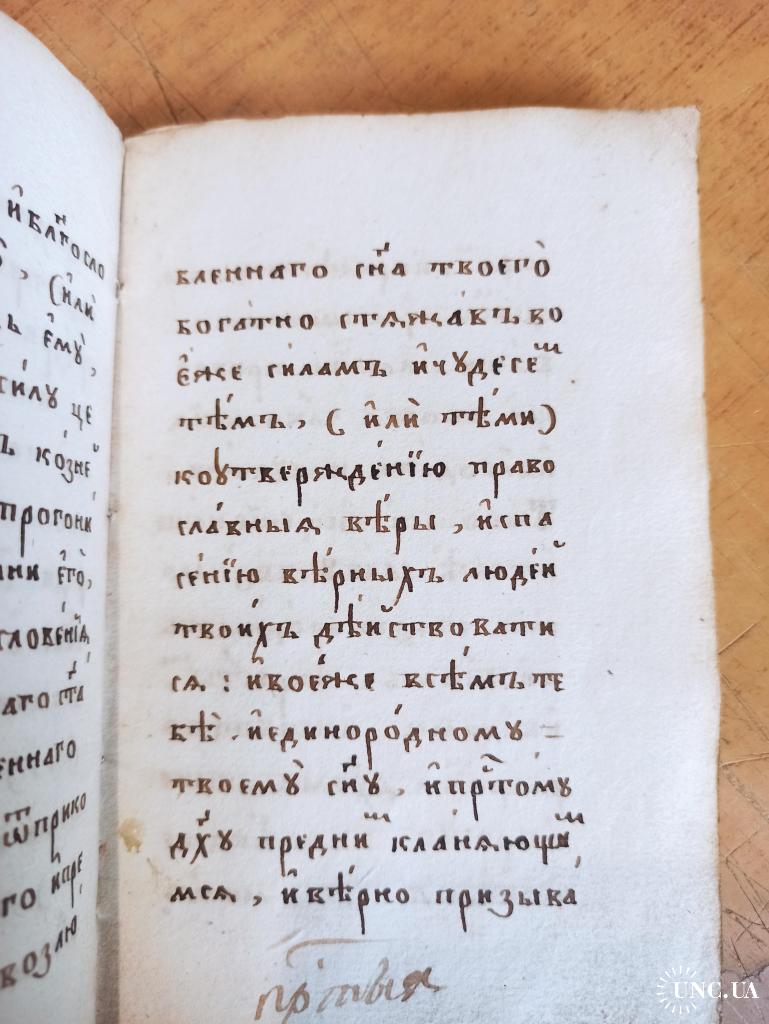 и҆бл҃госло
(и҆лѝ
ь є҆мꙋ̀,
силꙋ це
ъ ко́зне
прогони
ни є҆гѡ̀,
словенїѧ
аго ст҃а
еннаго
ѿприко
го и҆пре
возлю
вленнаго сн҃а твоего̀
богатно стѧжа́въ во
є҆́же силамъ и҆чꙋдесє
тѣ́мъ, (и҆лѝ тѣ́ми)
коутвержде́нїю право
сла́вныѧ вѣ́ры, и҆спа
се́нїю вѣ́рныхъ люде́й
твои́хъ дѣ́йствовати
сѧ: и҆воє́же всѣ́мъ те
бѣ̀ и҆единоро́дномꙋ
твоемꙋ̀ сн҃ꙋ, и҆прⷭ҇томꙋ
дх҃ꙋ предни кланѧющы
мсѧ, и҆вѣ́рно призыва
UNC.UA